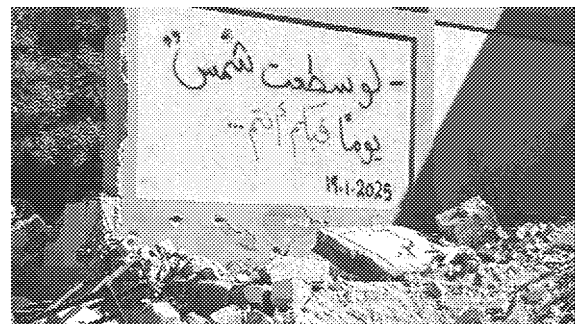 - لو سطعت شمسٌ
يومًا فكم أنتم...
19.1.2025